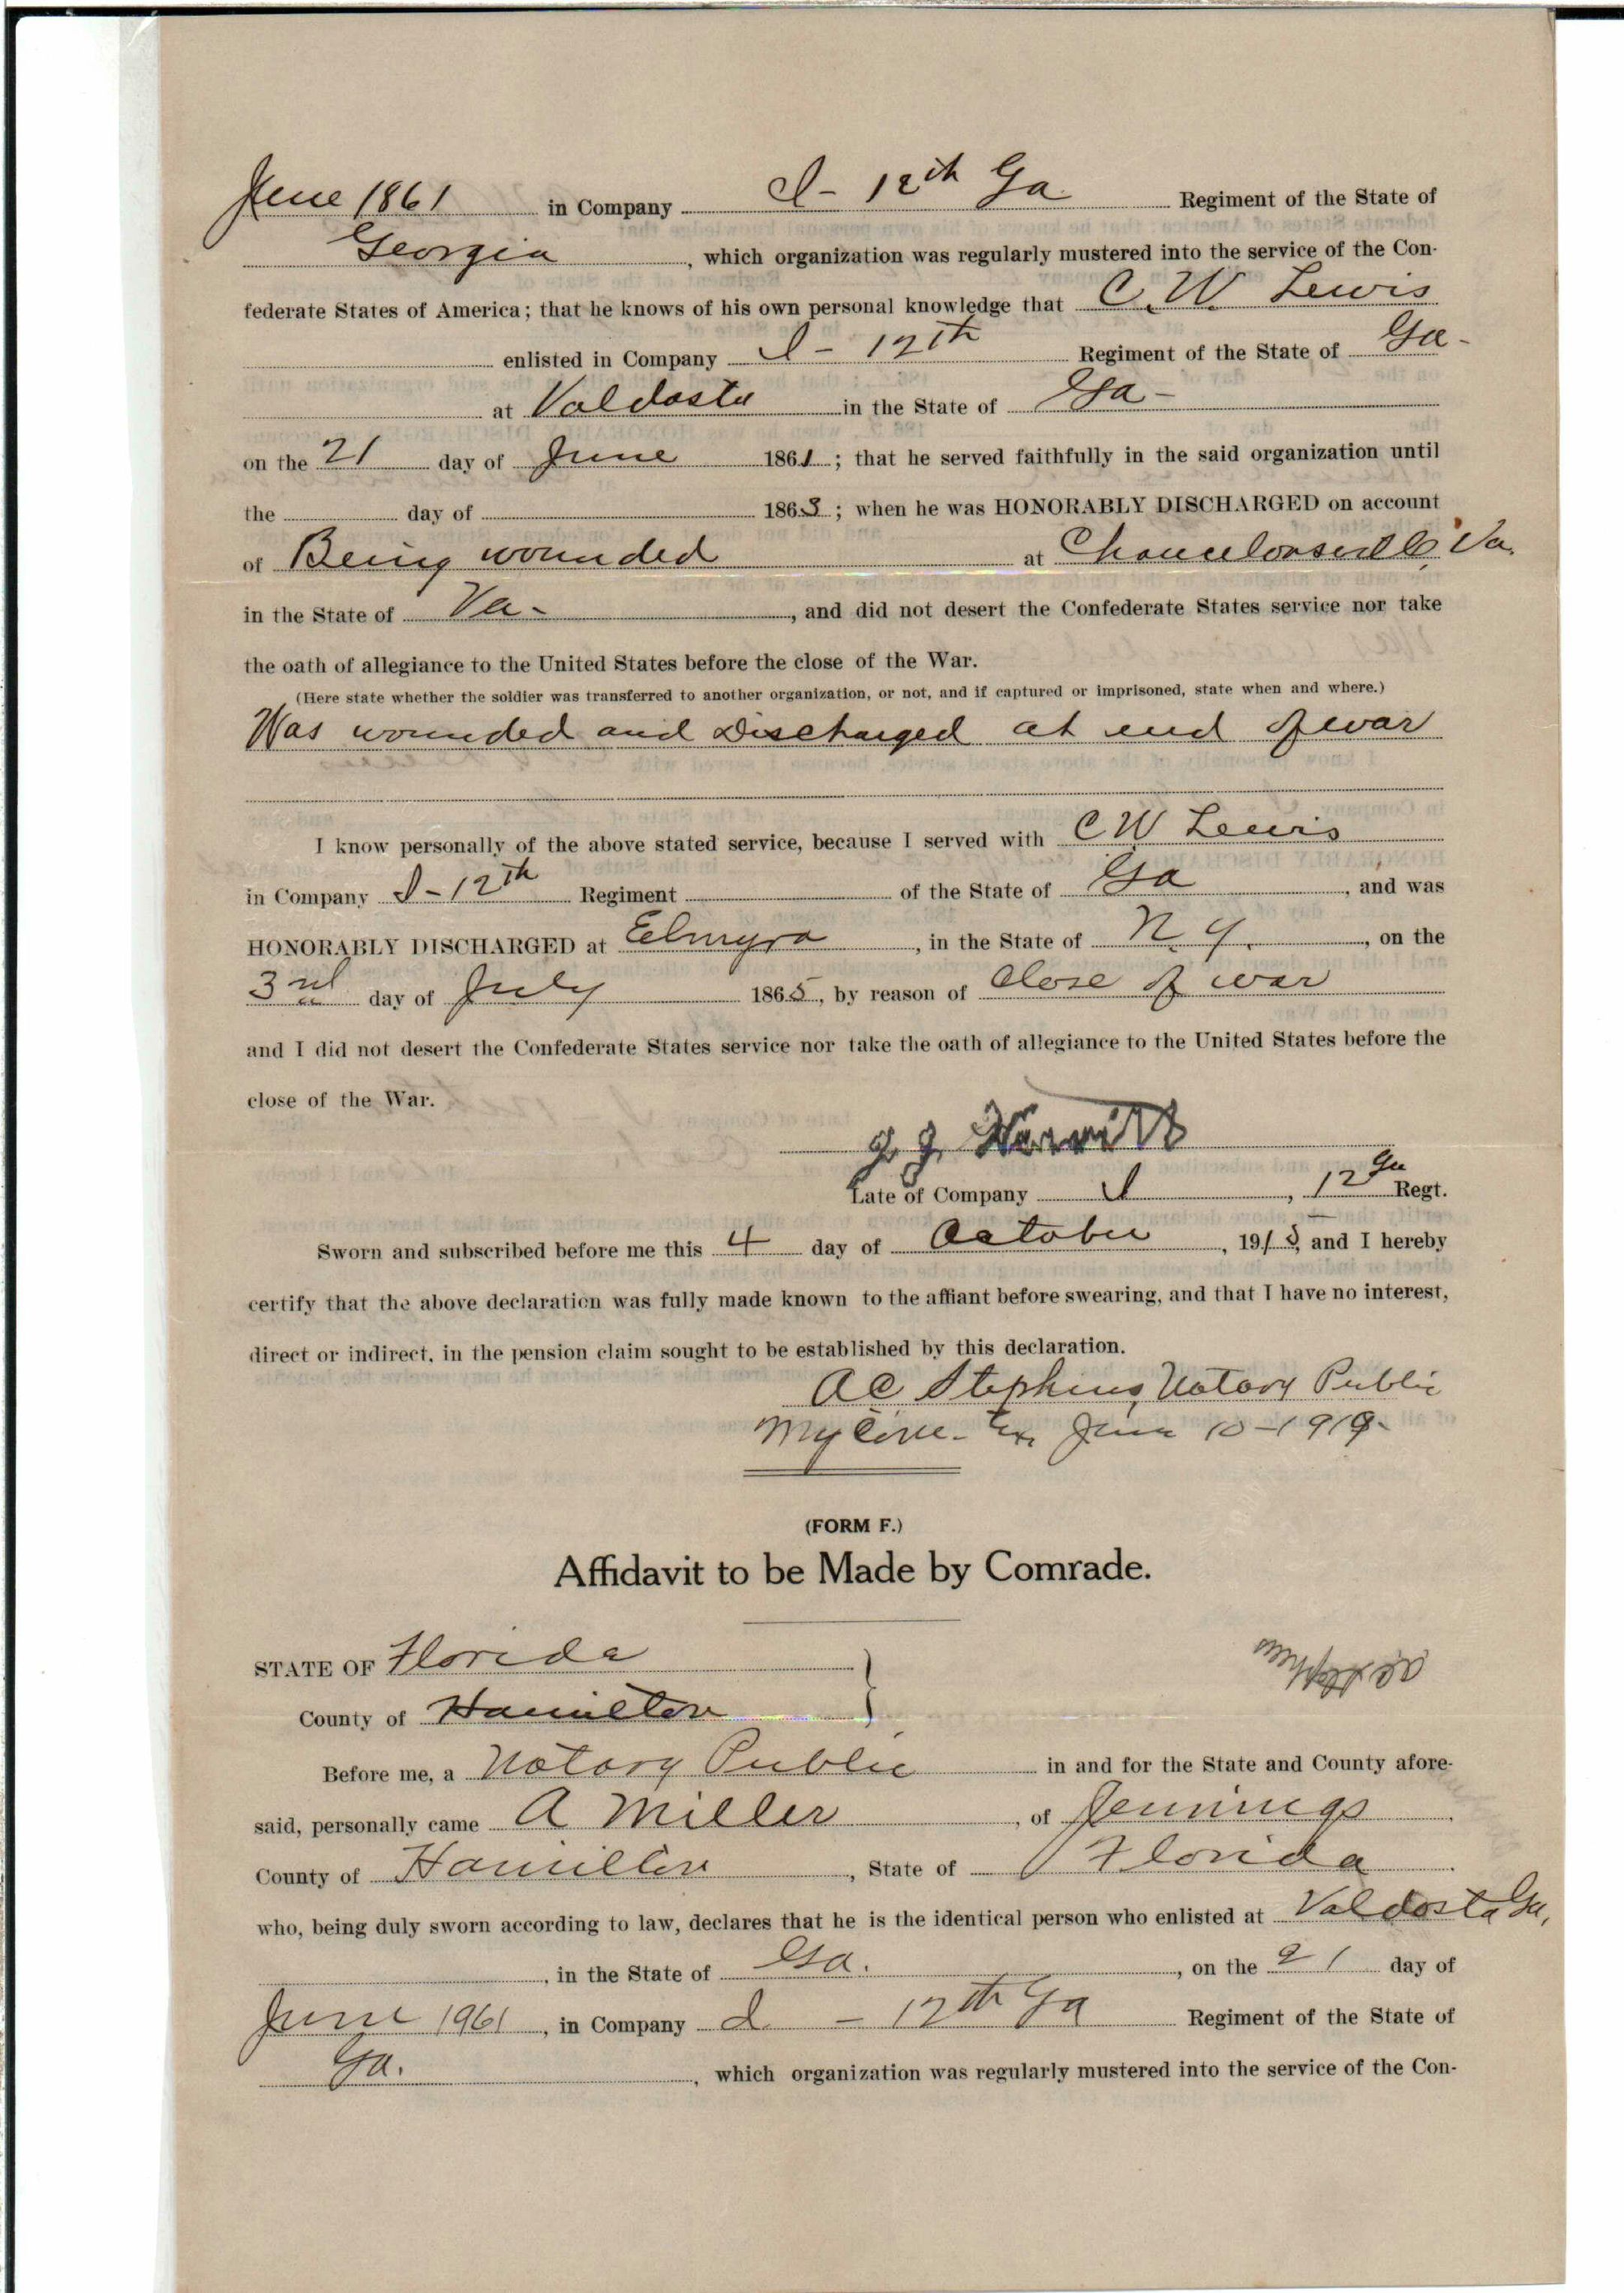 June 1861 in Company I - 12th Ga Regiment of the State of
Georgia, which organization was regularly mustered into the service of the Con-
federate States of America; that he knows of his own personal knowledge that C. W Lewis
enlisted in Company I - 12th Regiment of the State of Ga -
at Valdosta in the State of Ga -
on the 21 day of June 1861; that he served faithfully in the said organization until
the day of 1863; when he was HONORABLY DISCHARGED on account
of Being wounded at Chancelorsville Va.
in the State of Va -, and did not desert the Confederate States service nor take
the oath of allegiance to the United States before the close of the War.
(Here state whether the soldier was transferred to another organization, or not, and if captured or imprisoned, state when and where.)
Was wounded and Discharged at end of war
I know personally of the above stated service, because I served with C W Lewis
in Company I - 12th Regiment of the State of Ga, and was
HONORABLY DISCHARGED at Elmyra, in the State of N. Y., on the
3rd day of July 1865, by reason of Close of war
and I did not desert the Confederate States service nor take the oath of allegiance to the United States before the
close of the War.
Late of Company I, 12 Ga Regt.
Sworn and subscribed before me this 4 day of October, 1915, and I hereby
certify that the above declaration was fully made known to the affiant before swearing, and that I have no interest,
direct or indirect, in the pension claim sought to be established by this declaration.
A C Stephens, Notary Public
My Com. Ex. 10 - 1919 -
(FORM F.)
Affidavit to be Made by Comrade.
STATE OF Florida
County of Hamilton
Before me, a Notary Public in and for the State and County afore-
said, personally came A Miller, of Jennings
County of Hamilton, State of Florida
who, being duly sworn according to law, declares that he is the identical person who enlisted at Valdosta Ga,
, in the State of Ga., on the 21 day of
June 1961, in Company I - 12th Ga Regiment of the State of
Ga., which organization was regularly mustered into the service of the Con-